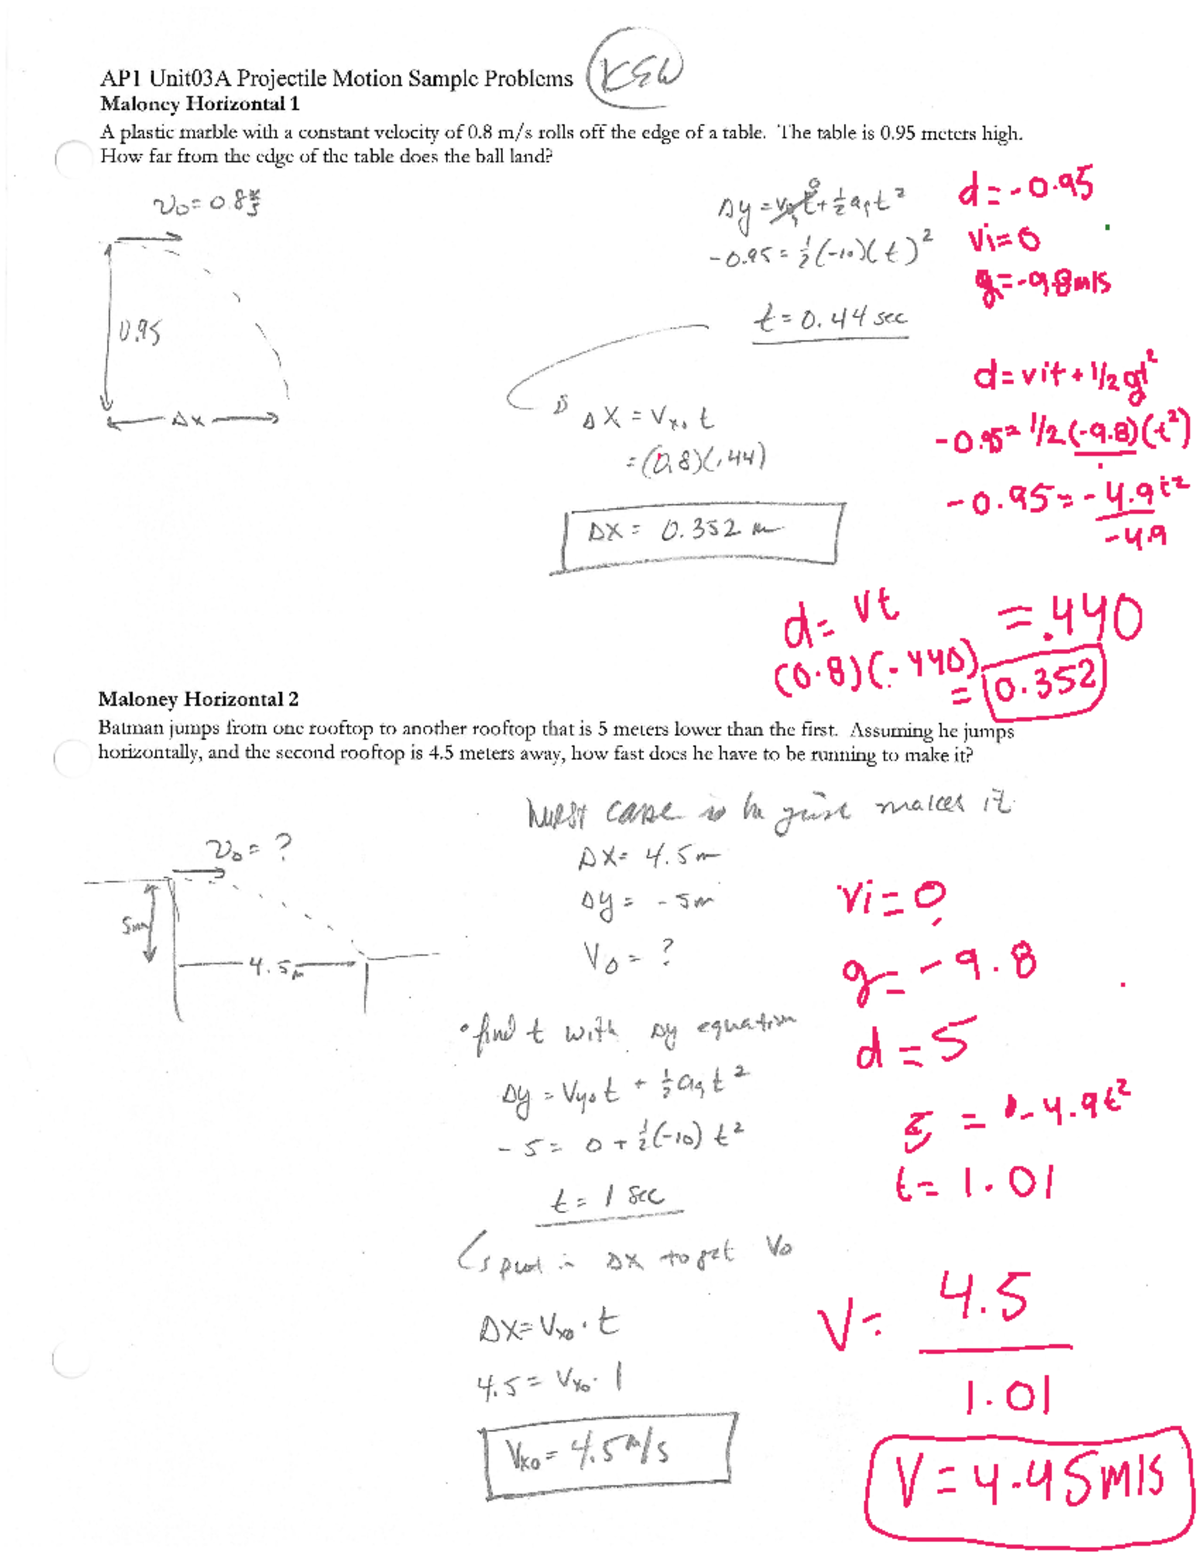 AP1 Unit03A Projectile Motion Sample Problems KEW
Maloney Horizontal 1
A plastic marble with a constant velocity of 0.8 m/s rolls off the edge of a table. The table is 0.95 meters high.
How far from the edge of the table does the ball land?
v₀ = 0.8 m/s
0.95
Δx
Δy = v₀t + ½ a_g t²
-0.95 = ½(-10)(t)²
t = 0.44 sec
Δx = Vx₀ t
= (0.8)(.44)
Δx = 0.352 m
d = -0.95
Vi = 0
g = -9.8 m/s
d = vit + 1/2 gt²
-0.95 = 1/2 (-9.8)(t²)
-0.95 = -4.9t²
-4.9
= .440
d = vt
(0.8)(.440)
= 0.352
Maloney Horizontal 2
Batman jumps from one rooftop to another rooftop that is 5 meters lower than the first. Assuming he jumps
horizontally, and the second rooftop is 4.5 meters away, how fast does he have to be running to make it?
v₀ = ?
5m
4.5m
Worst case is he just makes it
Δx = 4.5m
Δy = -5m
V₀ = ?
• find t with Δy equation
Δy = Vy₀t + ½ a_g t²
-5 = 0 + ½(-10) t²
t = 1 sec
put in Δx to get V₀
Δx = Vx₀ · t
4.5 = Vx₀ · 1
Vx₀ = 4.5 m/s
Vi = 0
g = -9.8
d = 5
5 = -4.9t²
t = 1.01
V = 4.5
1.01
V = 4.45 m/s